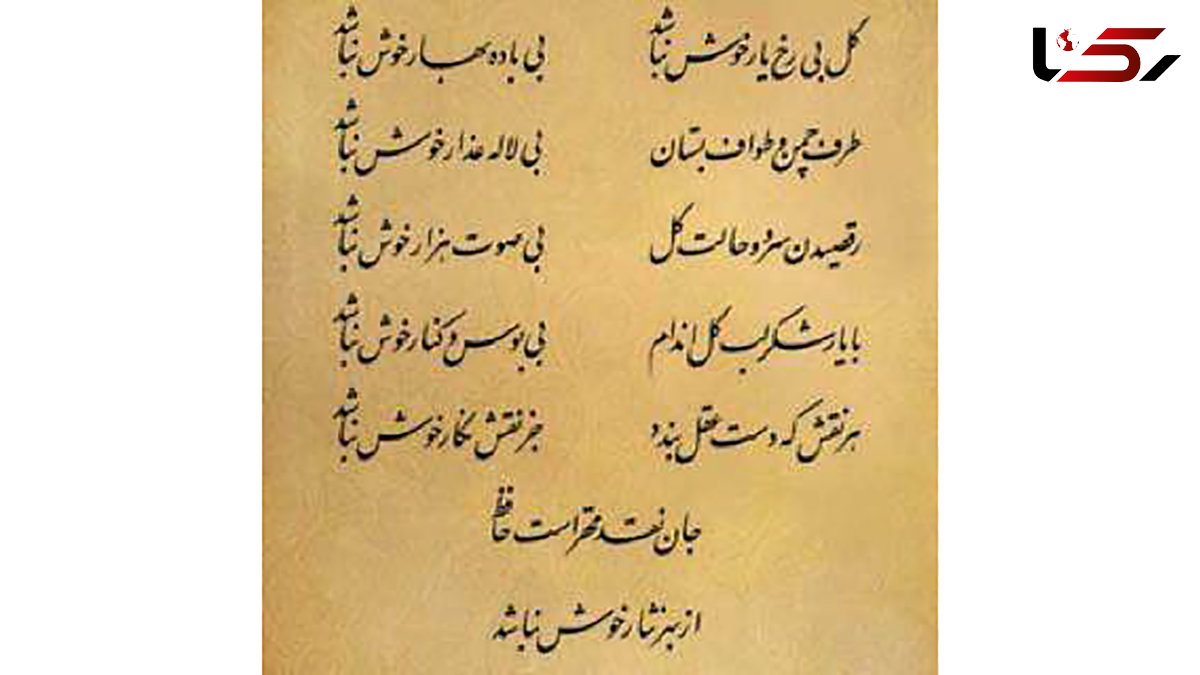 رکنا
گل بی رخ یار خوش نباشد بی باده بهار خوش نباشد
طرف چمن و طواف بستان بی لاله عذار خوش نباشد
رقصیدن سرو و حالت گل بی صوت هزار خوش نباشد
با یار شکر لب گل اندام بی بوس و کنار خوش نباشد
هر نقش که دست عقل بندد جز نقش نگار خوش نباشد
جان نقد محقر است حافظ
از بهر نثار خوش نباشد